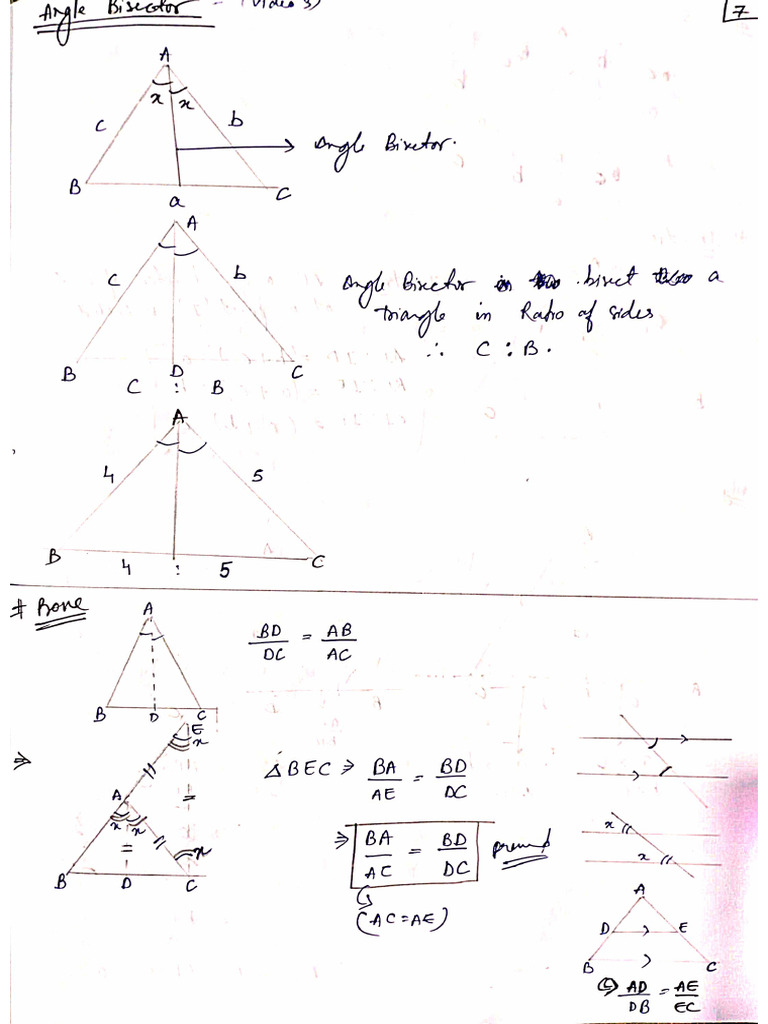 Angle Bisector - (Video 3)
7
A
x x
c b
Angle Bisector.
B C
a
A
c b
Angle Bisector bisect a
triangle in Ratio of sides
∴ C : B.
B D C
C : B
A
4 5
B C
4 : 5
# Bove
A
BD/DC = AB/AC
B D C
E
x
⇒
△BEC ⇒ BA/AE = BD/DC
A
x x
=
=
x
B D C
⇒ BA/AC = BD/DC proved
(AC = AE)
x
x
A
D E
B C
AD/DB = AE/EC